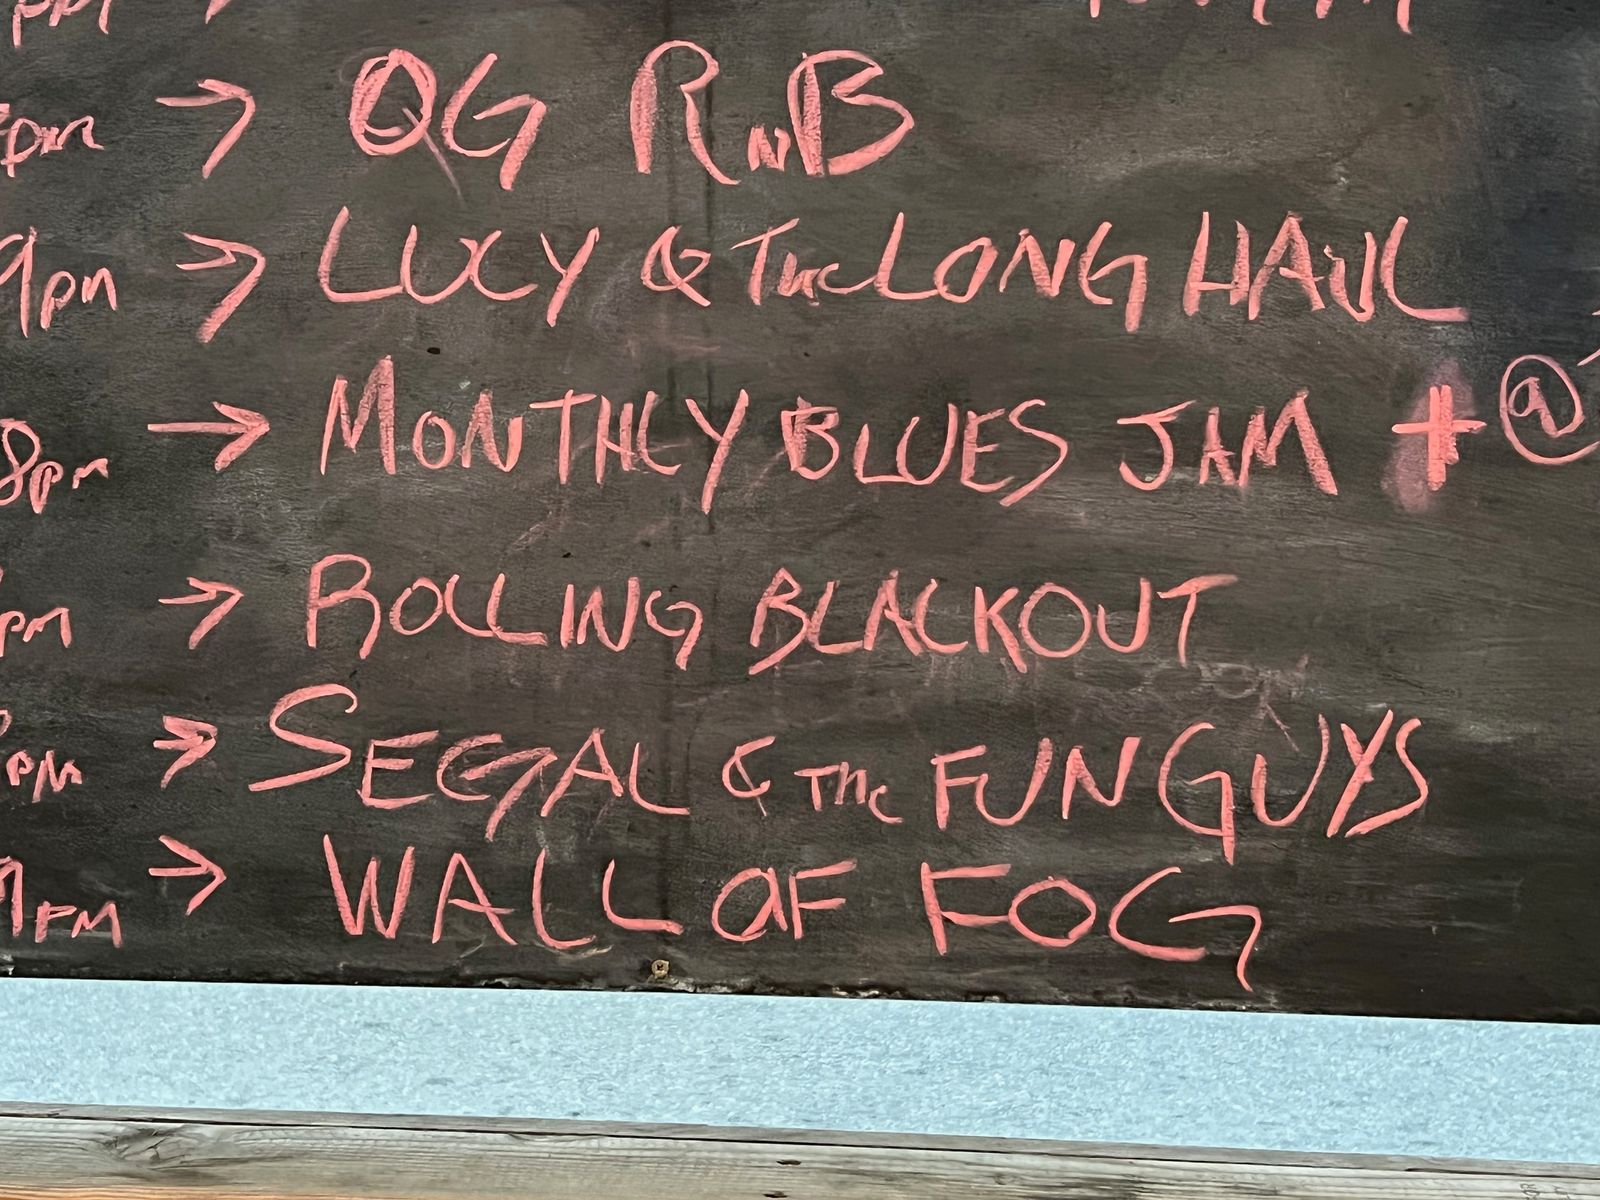 pm →
pm → QG RnB
9pm → LUCY & The LONG HAUL
8pm → MONTHLY BLUES JAM + @
pm → ROLLING BLACKOUT
pm → SEGAL & THE FUN GUYS
9PM → WALL OF FOG